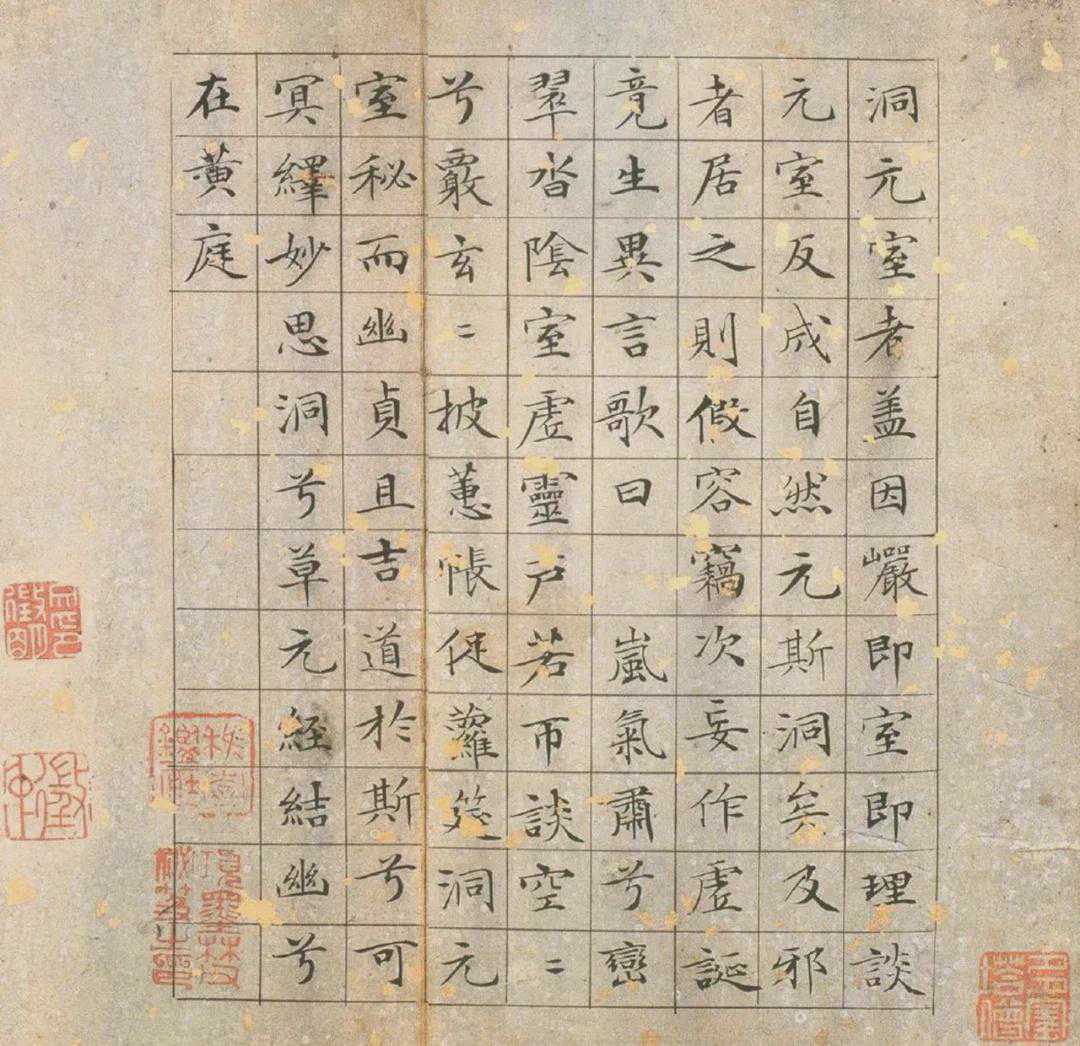 洞元室者盖因巖即室即理談
元室反成自然元斯洞矣及邪
者居之則假容竊次妄作虛誕
竟生異言歌曰　嵐氣肅兮巒
翠沓陰室虛靈戶若帀談空〻
兮覈玄〻披蕙帳促蘿筵洞元
室秘而幽貞且吉道於斯兮可
冥繹妙思洞兮草元經結幽兮
在黃庭
項墨林父
秘笈之印